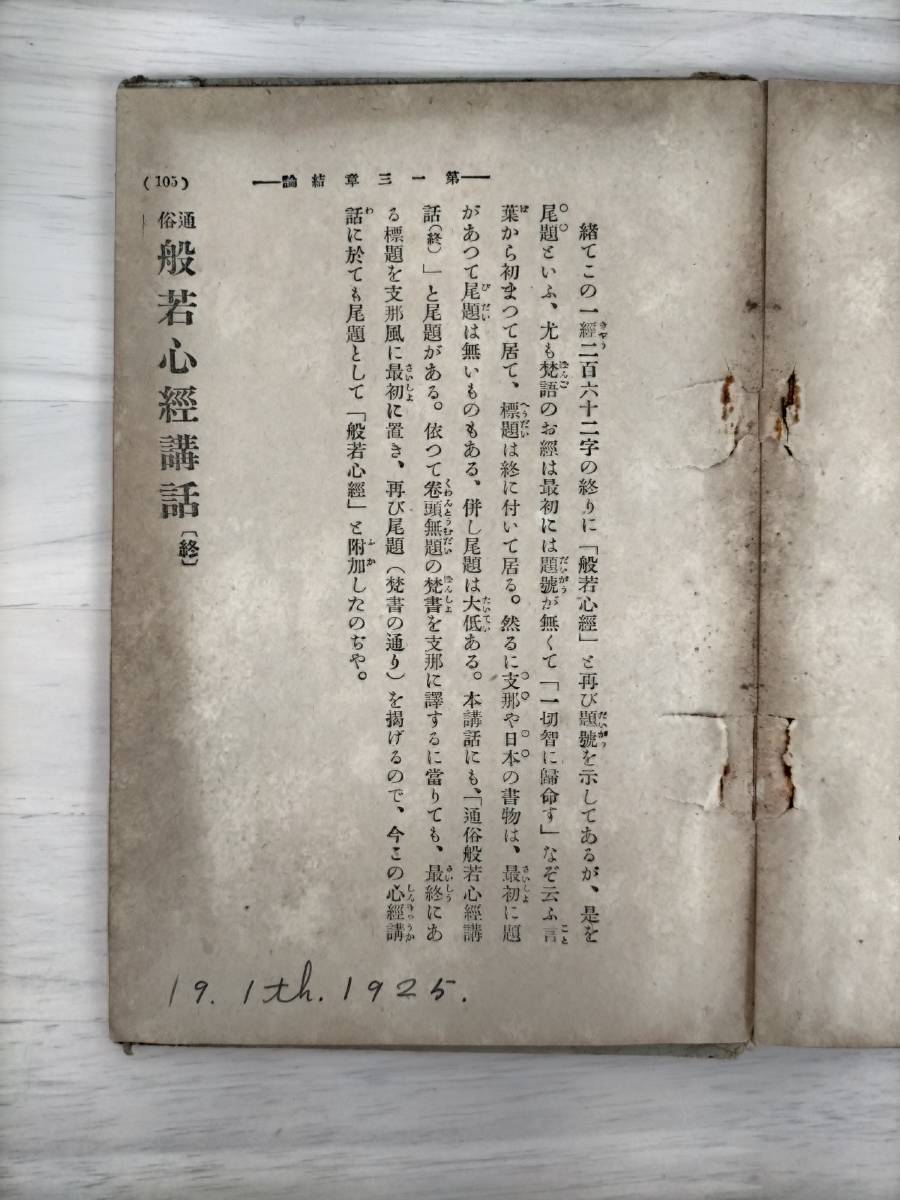 ―第一三章 結論―
(105)
緒てこの一經二百六十二字の終りに「般若心經」と再び題號を示してあるが、是を
尾題といふ、尤も梵語のお經は最初には題號が無くて「一切智に歸命す」なぞ云ふ言
葉から初まつて居て、標題は終に付いて居る。然るに支那や日本の書物は、最初に題
があつて尾題は無いものもある、併し尾題は大低ある。本講話にも、「通俗般若心經講
話(終)」と尾題がある。依つて卷頭無題の梵書を支那に譯するに當りても、最終にあ
る標題を支那風に最初に置き、再び尾題(梵書の通り)を揭げるので、今この心經講
話に於ても尾題として「般若心經」と附加したのぢや。
通俗 般若心經講話〔終〕
19. 1th. 1925.